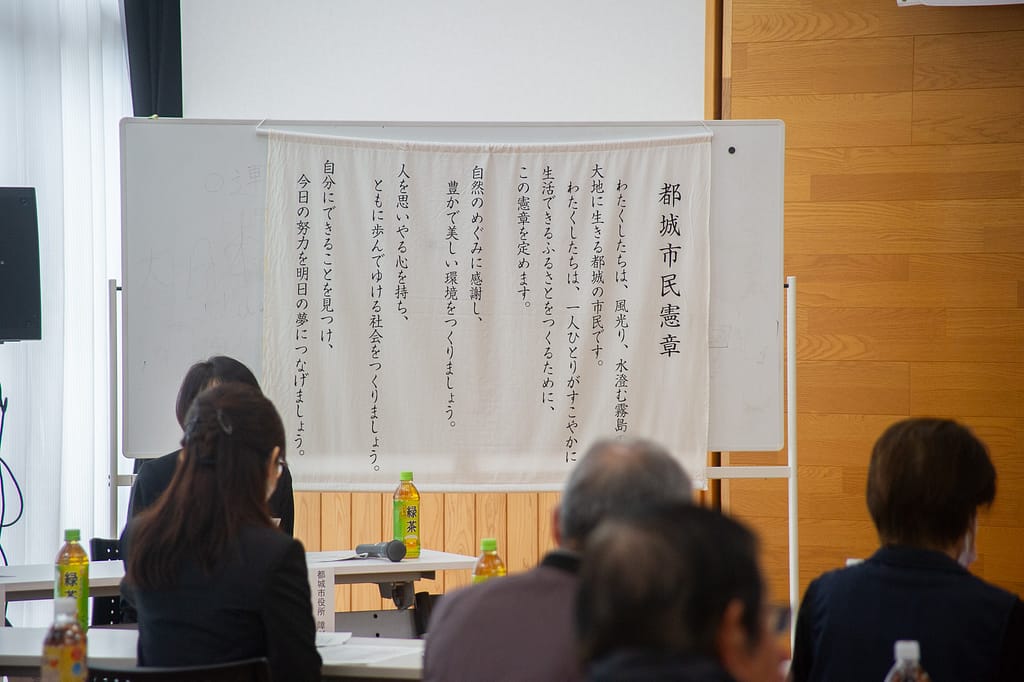 都城市民憲章
わたくしたちは、風光り、水澄む霧島
大地に生きる都城の市民です。
わたくしたちは、一人ひとりがすこやかに
生活できるふるさとをつくるために、
この憲章を定めます。
自然のめぐみに感謝し、
豊かで美しい環境をつくりましょう。
人を思いやる心を持ち、
ともに歩んでゆける社会をつくりましょう。
自分にできることを見つけ、
今日の努力を明日の夢につなげましょう。
緑茶
緑茶
都城市役所 障